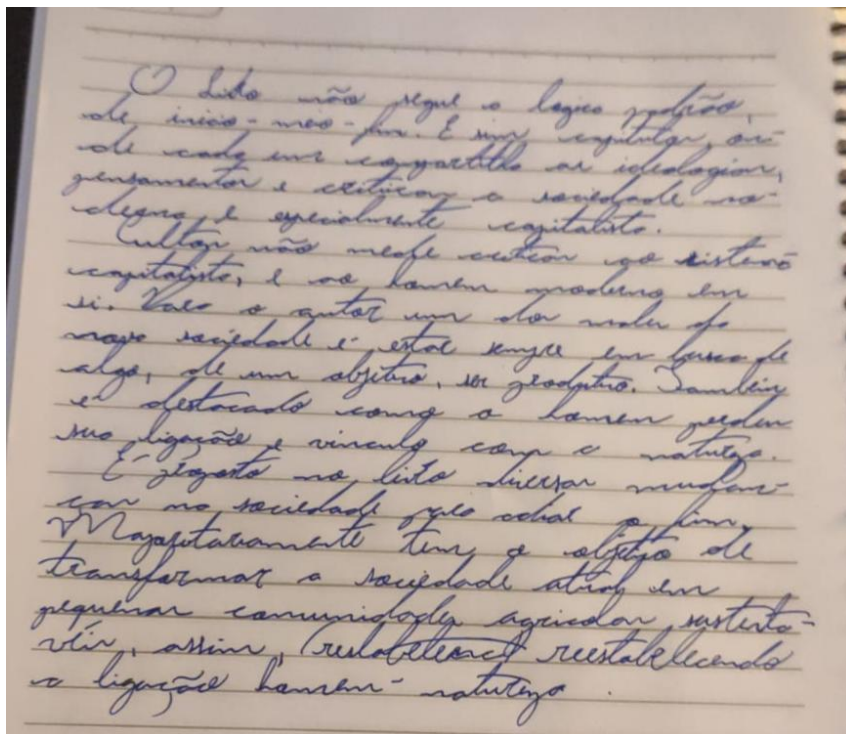 O livro não segue a logica padrão,
de inicio-meio-fim. E sim capitular, on-
de cada um compartilha as ideologias,
pensamentos e criticas a sociedade mo-
derna e especialmente capitalista.
não mede criticas ao sistema
capitalista, e ao homem moderno em
si. Para o autor um dos males da
nossa sociedade é estar sempre em busca de
algo, de um objetivo, ser produtivo. Também
é destacado como o homem perdeu
sua ligação e vinculo com a natureza.
É proposto no livro diversas mudan-
ças na sociedade para adiar o fim,
Majoritariamente tem o objetivo de
transformar a sociedade atual em
pequenas comunidades agricolas sustenta-
véis, assim, reestabelecendo
a ligação homem-natureza.